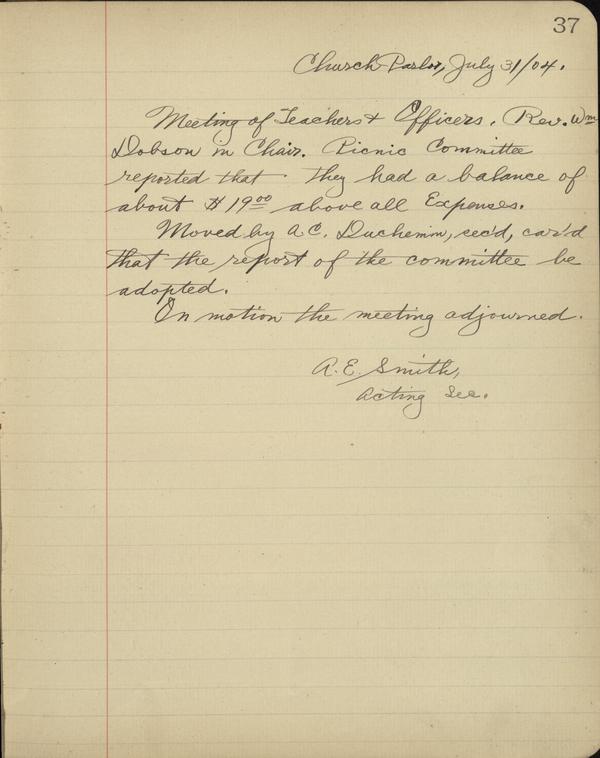 37
Church Parlor, July 31/04.
Meeting of Teachers & Officers. Rev. Wm
Dobson in Chair. Picnic Committee
reported that they had a balance of
about $19.00 above all Expenses.
Moved by A.C. Duchemin, sec'd, car'd
that the report of the committee be
adopted.
On motion the meeting adjourned.
A.E. Smith,
Acting Sec.